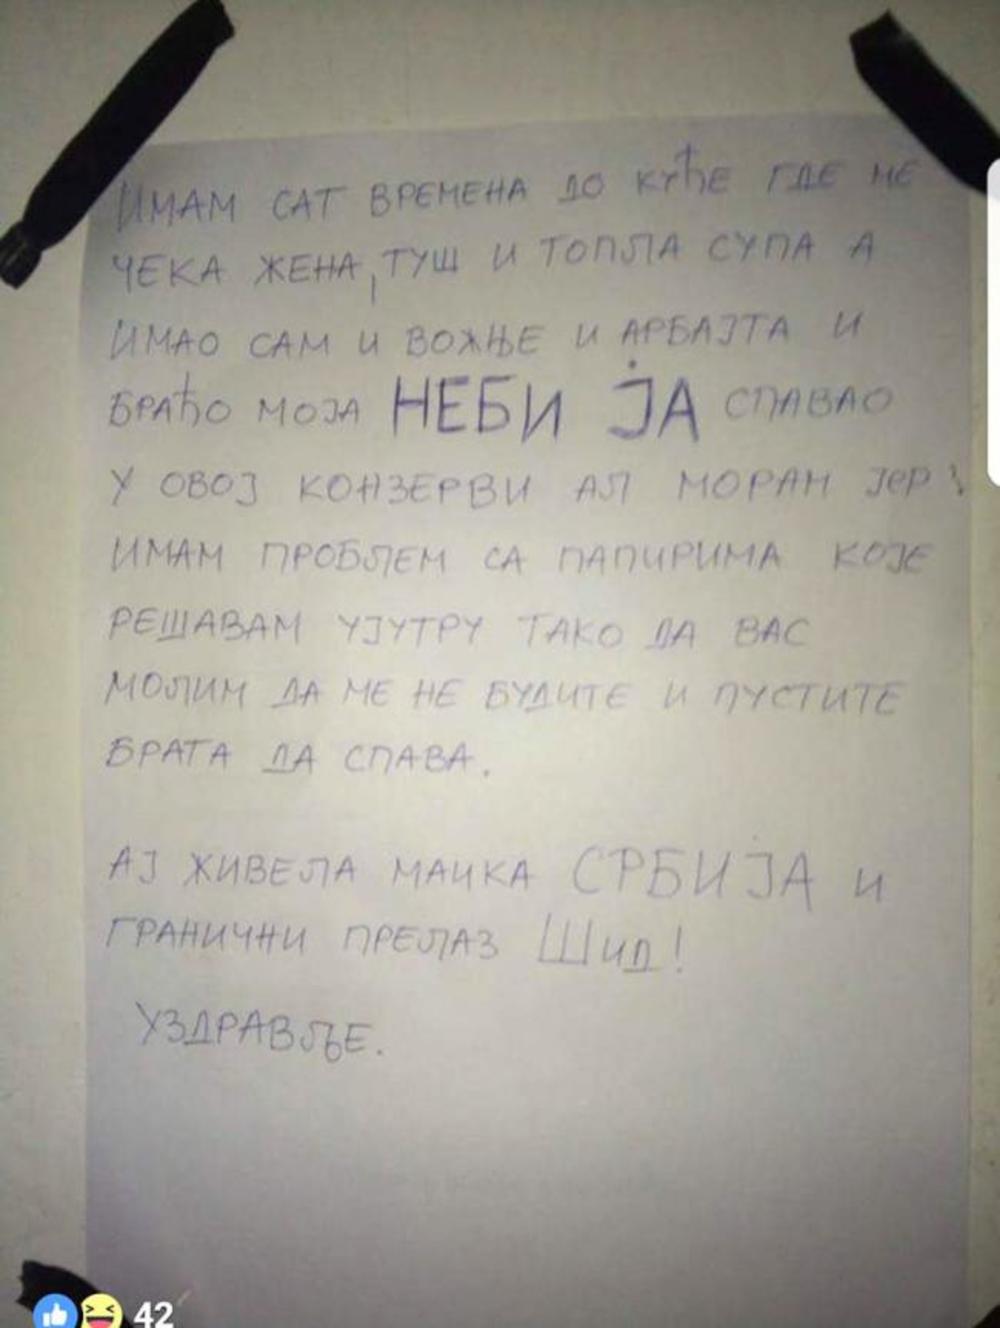 ИМАМ САТ ВРЕМЕНА ДО КУЋЕ ГДЕ МЕ
ЧЕКА ЖЕНА, ТУШ И ТОПЛА СУПА А
ИМАО САМ И ВОЖЊЕ И АРБАЈТА И
БРАЋО МОЈА НЕБИ ЈА СПАВАО
У ОВОЈ КОНЗЕРВИ АЛ МОРАМ ЈЕР
ИМАМ ПРОБЛЕМ СА ПАПИРИМА КОЈЕ
РЕШАВАМ УЈУТРУ ТАКО ДА ВАС
МОЛИМ ДА МЕ НЕ БУДИТЕ И ПУСТИТЕ
БРАТА ДА СПАВА.
АЈ ЖИВЕЛА МАИКА СРБИЈА И
ГРАНИЧНИ ПРЕЛАЗ ШИД!
УЗДРАВЉЕ.
42